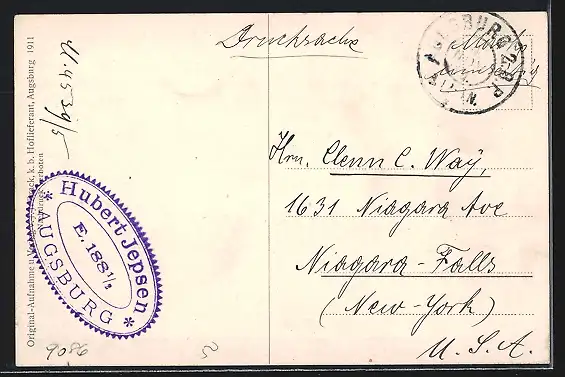 Drucksache
Hrn. Clenn C. Way,
1631 Niagara Ave
Niagara-Falls
(New-York)
U. S. A.
Hubert Jepsen
E. 188 1/2
* AUGSBURG *
Original-Aufnahme u. k. b. Hoflieferant, Augsburg 1911
9086